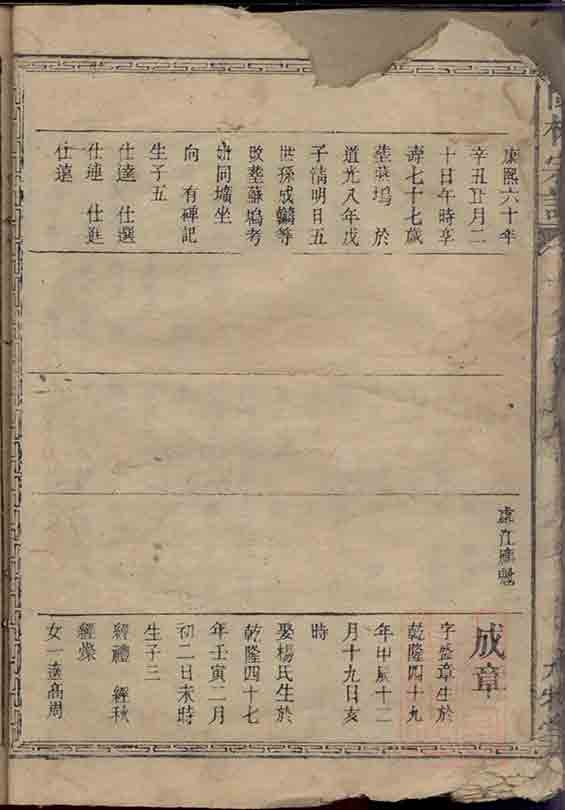 康熙六十年
辛丑廿月二
十日午時享
壽七十七歲
塟蘇塢 於
道光八年戊
子淸明日五
世孫成麟等
改塟蘇塢考
妣同壙坐
向 有碑記
生子五
仕達 仕選
仕連 仕進
仕遠
成章
字盛章生於
乾隆四十九
年甲辰十二
月十九日亥
時
娶楊氏生於
乾隆四十七
年壬寅二月
初二日未時
生子三
經禮 經秋
經燦
女一適高周